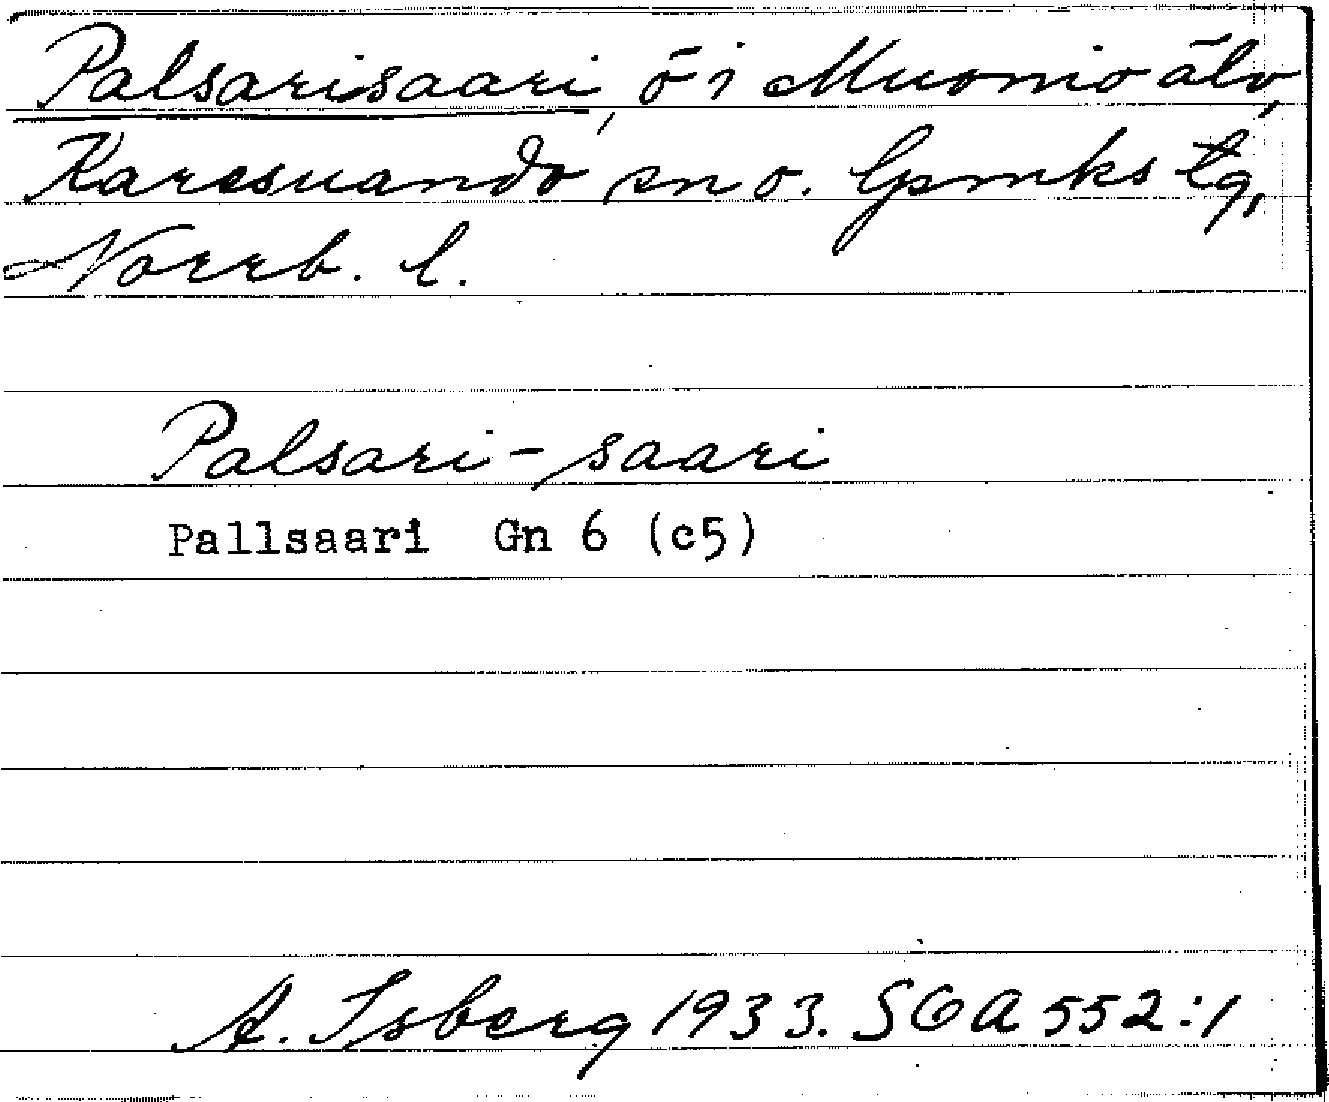 Palsarisaari, ö i Muonio älv,
Karesuando sn o. lpmks tg,
Norrb. l.
Palsari-saari
Pallsaari Gn 6 (c5)
A. Isberg 1933. SOA 552:1